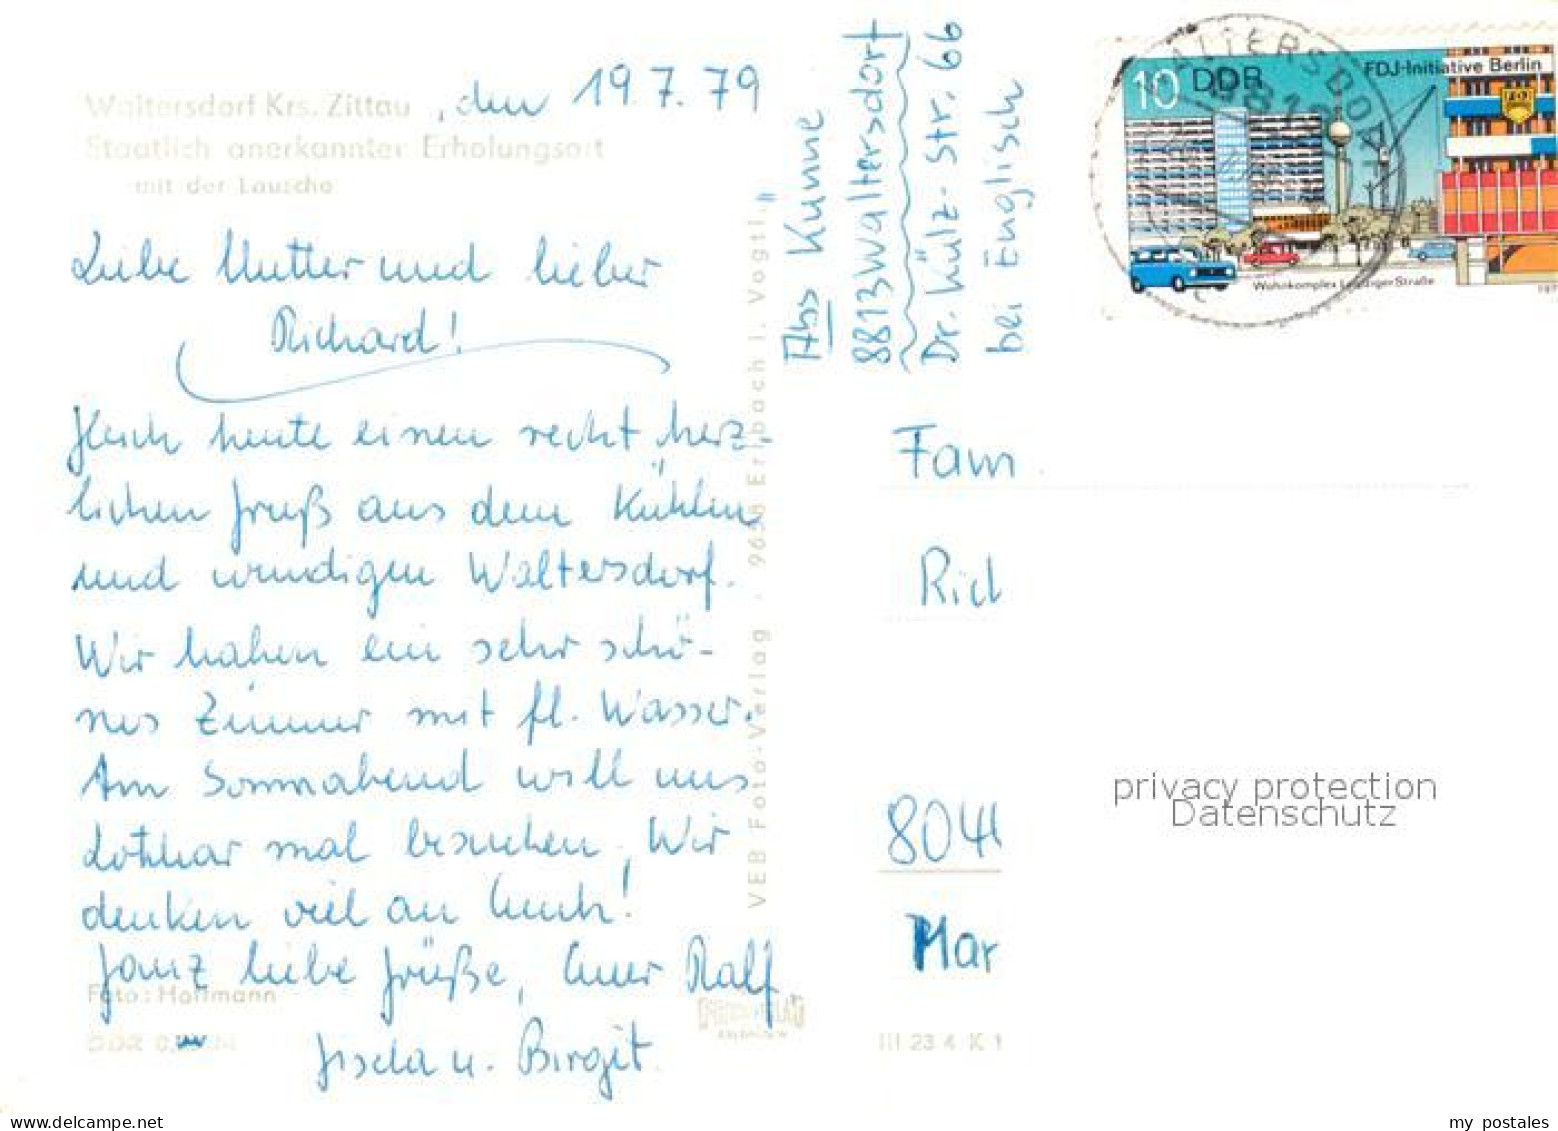 Waltersdorf Krs. Zittau, den 19.7.79
Staatlich anerkannter Erholungsort
mit der Lausche
Liebe Mutter und lieber
Richard!
Euch heute einen recht herz-
lichen Gruß aus dem Kühlen
und windigen Waltersdorf.
Wir haben ein sehr schö-
nes Zimmer mit fl. Wasser.
Am Sonnabend will uns
Lothar mal besuchen. Wir
denken viel an Euch!
Ganz liebe Grüße, Euer Ralf
Gisela u. Birgit
Foto: Hoffmann
DDR
VEB Foto-Verlag · 9658 Erlbach i. Vogtl.
III 23 4 K 1
Abs Kunne
8813 Waltersdorf
Dr. Külz-Str. 66
bei Englisch
10 DDR
FDJ-Initiative Berlin
Wohnkomplex Leipziger Straße
WALTERSDORF
8813
Fam
Rich
804
Mar
privacy protection
Datenschutz
my postales